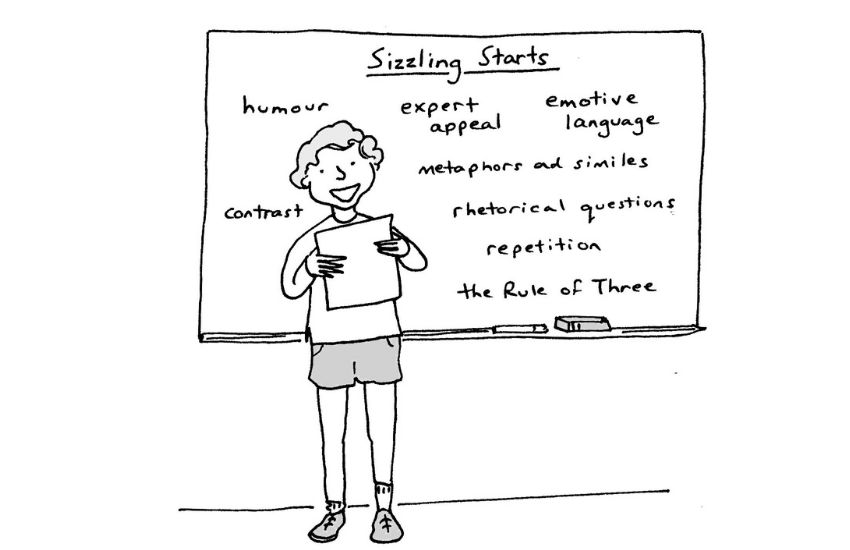 Sizzling Starts
humour
expert
appeal
emotive
language
metaphors ad similes
contrast
rhetorical questions
repetition
the Rule of Three